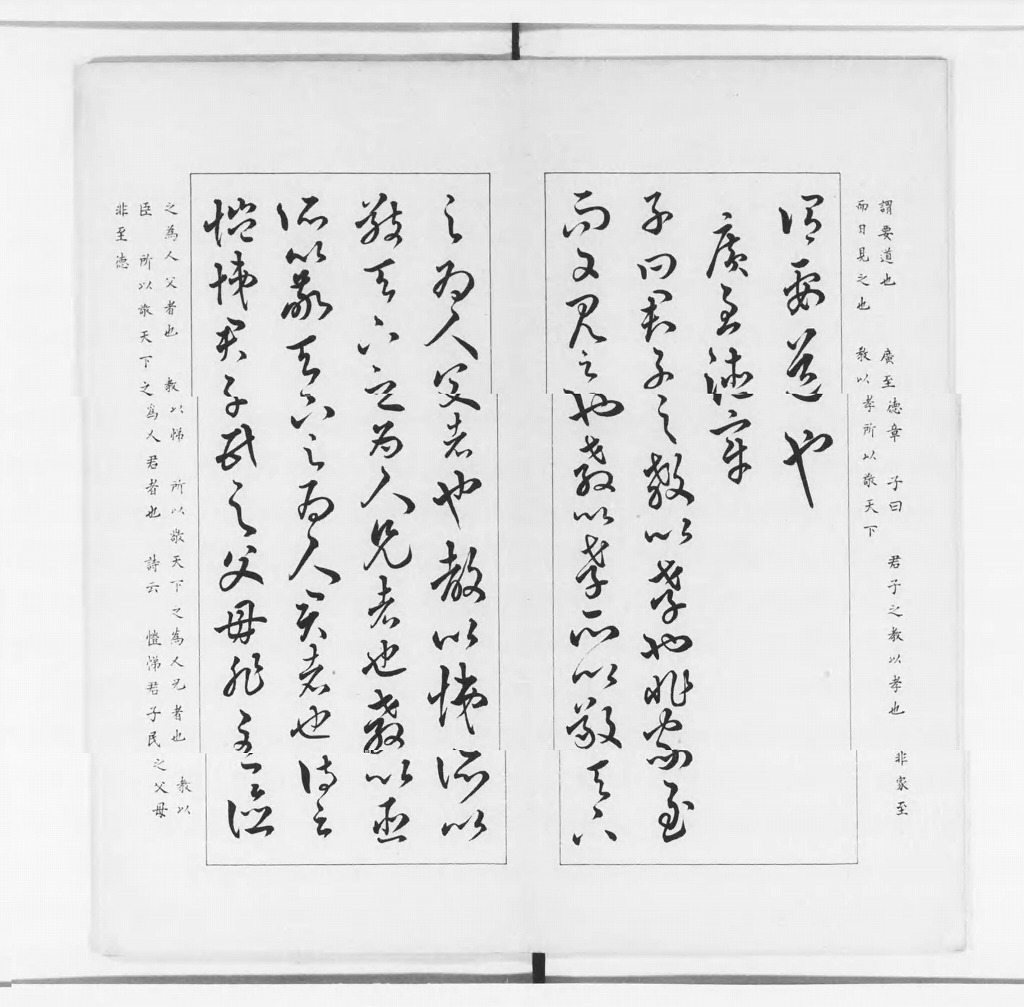 謂要道也 廣至德章 子曰 君子之教以孝也 非家至
而日見之也 教以孝所以敬天下
謂要道也
廣至德章
子曰君子之教以孝也非家至
而日見之也教以孝所以敬天下
之為人父者也教以悌所以
敬天下之為人兄者也教以臣
所以敬天下之為人君者也詩云
愷悌君子民之父母非至德
之為人父者也 教以悌 所以敬天下之為人兄者也 教以
臣 所以敬天下之為人君者也 詩云 愷悌君子民之父母
非至德